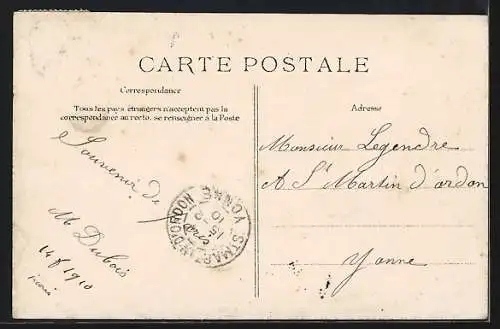 CARTE POSTALE
Correspondance
Tous les pays étrangers n'acceptent pas la
correspondance au recto. se renseigner à la Poste
Adresse
Souvenir de
M Dubois
1910
Monsieur Legendre
A St Martin d'ordon
Yonne
ST MARTIN D'ORDON
YONNE